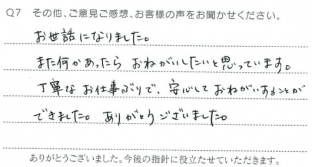 Q7 その他、ご意見ご感想、お客様の声をお聞かせください。
お世話になりました。
また何かあったら おねがいしたいと思っています。
丁寧な お仕事ぶりで、安心して おねがいすることが
できました。ありがとうございました。
ありがとうございました。今後の指針に役立たせていただきます。